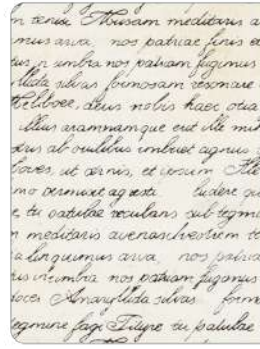 n ave Musam meditaris a
mus arva, nos patriae finis et
tus n umbra nos patriam fugimus
llida silvas formosam resonare
Meliboee, deus nobis haec otia
illius arammamque erit ille mih
dris ab ovilibus imbuet agnus
boves, ut cernis, et ipsum
mo permisit agresti ludere qu
e, tu patulae recubans sub tegmi
n meditaris avenaslvestrem te
a linquimus arva, nos patria
tus in umbra nos patriam fugimus
doces Amaryllida silvas form
tegmine fagi Tityre tu patulae